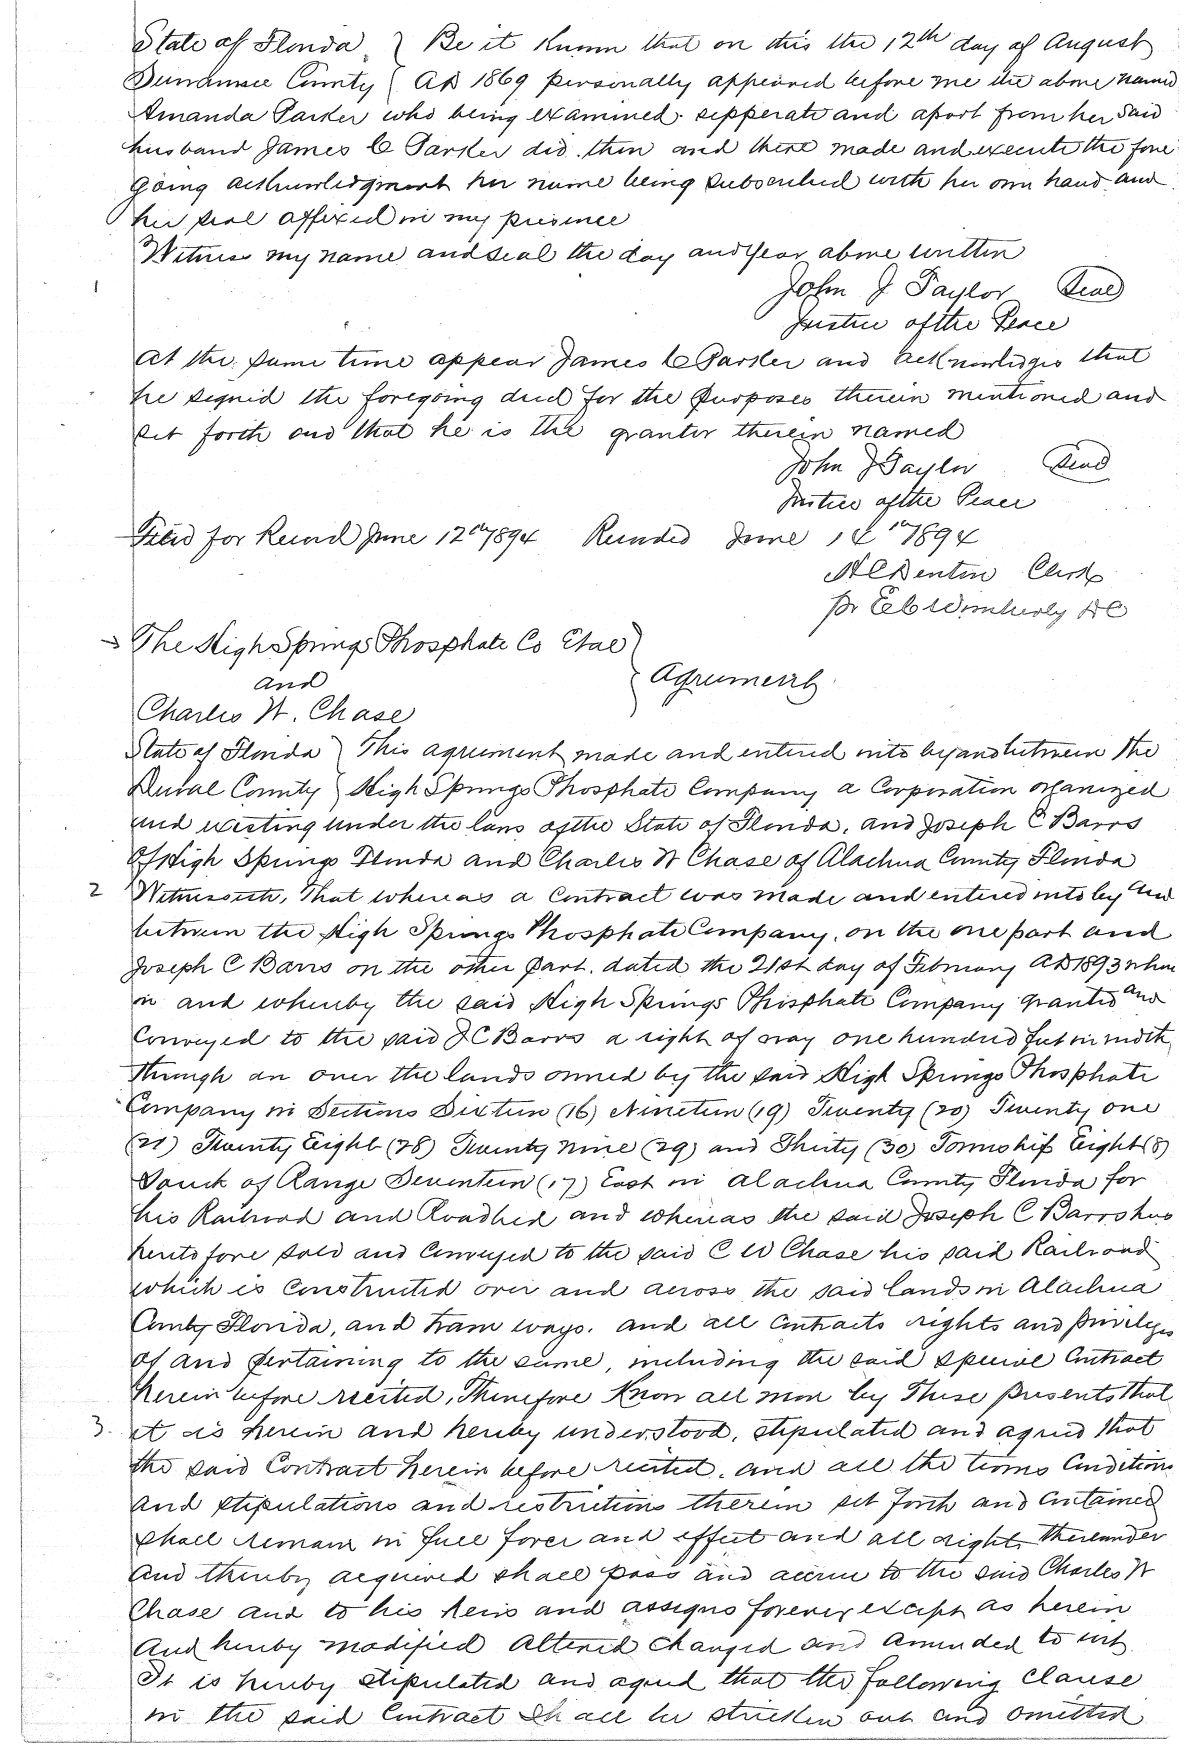 State of Florida } Be it Known that on this the 12th day of August
Suwannee County { AD 1869 personally appeared before me the above named
Amanda Parker who being examined sepperate and apart from her Said
husband James C Parker did then and there made and execute the fore
going acknowledgment her name being subscribed with her own hand and
her seal affixed in my presence
Witness my name and seal the day and year above written
John J Taylor Seal
1
Justice of the Peace
At the same time appear James C Parker and acknowledges that
he signed the foregoing deed for the purposes therein mentioned and
set forth and that he is the grantor therein named
John J Taylor Seal
Justice of the Peace
Filed for Record June 12th 1894 Recorded June 14th 1894
H C Denton Clerk
pr E C Wimberly DC
The High Springs Phosphate Co Etal }
and } Agreement
Charles W. Chase
State of Florida } This agreement made and entered into by and between the
Duval County } High Springs Phosphate Company a Corporation organized
and existing under the laws of the State of Florida, and Joseph C Barrs
of High Springs Florida and Charles W Chase of Alachua County Florida
2 Witnesseth, That whereas a Contract was made and entered into by and
between the High Springs Phosphate Company, on the one part and
Joseph C Barrs on the other part. dated the 21st day of February AD 1893 where
in and whereby the said High Springs Phosphate Company granted and
Conveyed to the said J C Barrs a right of way one hundred feet in width
through an over the lands owned by the said High Springs Phosphate
Company in Sections Sixteen (16) Nineteen (19) Twenty (20) Twenty one
(21) Twenty Eight (28) Twenty Nine (29) and Thirty (30) Township Eight (8)
South of Range Seventeen (17) East in Alachua County Florida for
his Railroad and Roadbed and whereas the said Joseph C Barrs has
heretofore sold and Conveyed to the said C W Chase his said Railroad
which is Constructed over and across the said lands in Alachua
County Florida, and tram ways. and all Contracts rights and privileges
of and pertaining to the same, including the said special Contract
herein before recited, Therefore Know all men by These presents that
3. it is herein and hereby understood, stipulated and agreed that
the said Contract herein before recited. and all the terms Conditions
and stipulations and restrictions therein set forth and Contained
shall remain in full force and effect and all rights thereunder
and thereby acquired shall pass and accrue to the said Charles W
Chase and to his heirs and assigns forever except as herein
and hereby modified altered changed and amended to wit
It is hereby stipulated and agreed that the following clause
in the said Contract Shall be stricken out and omitted